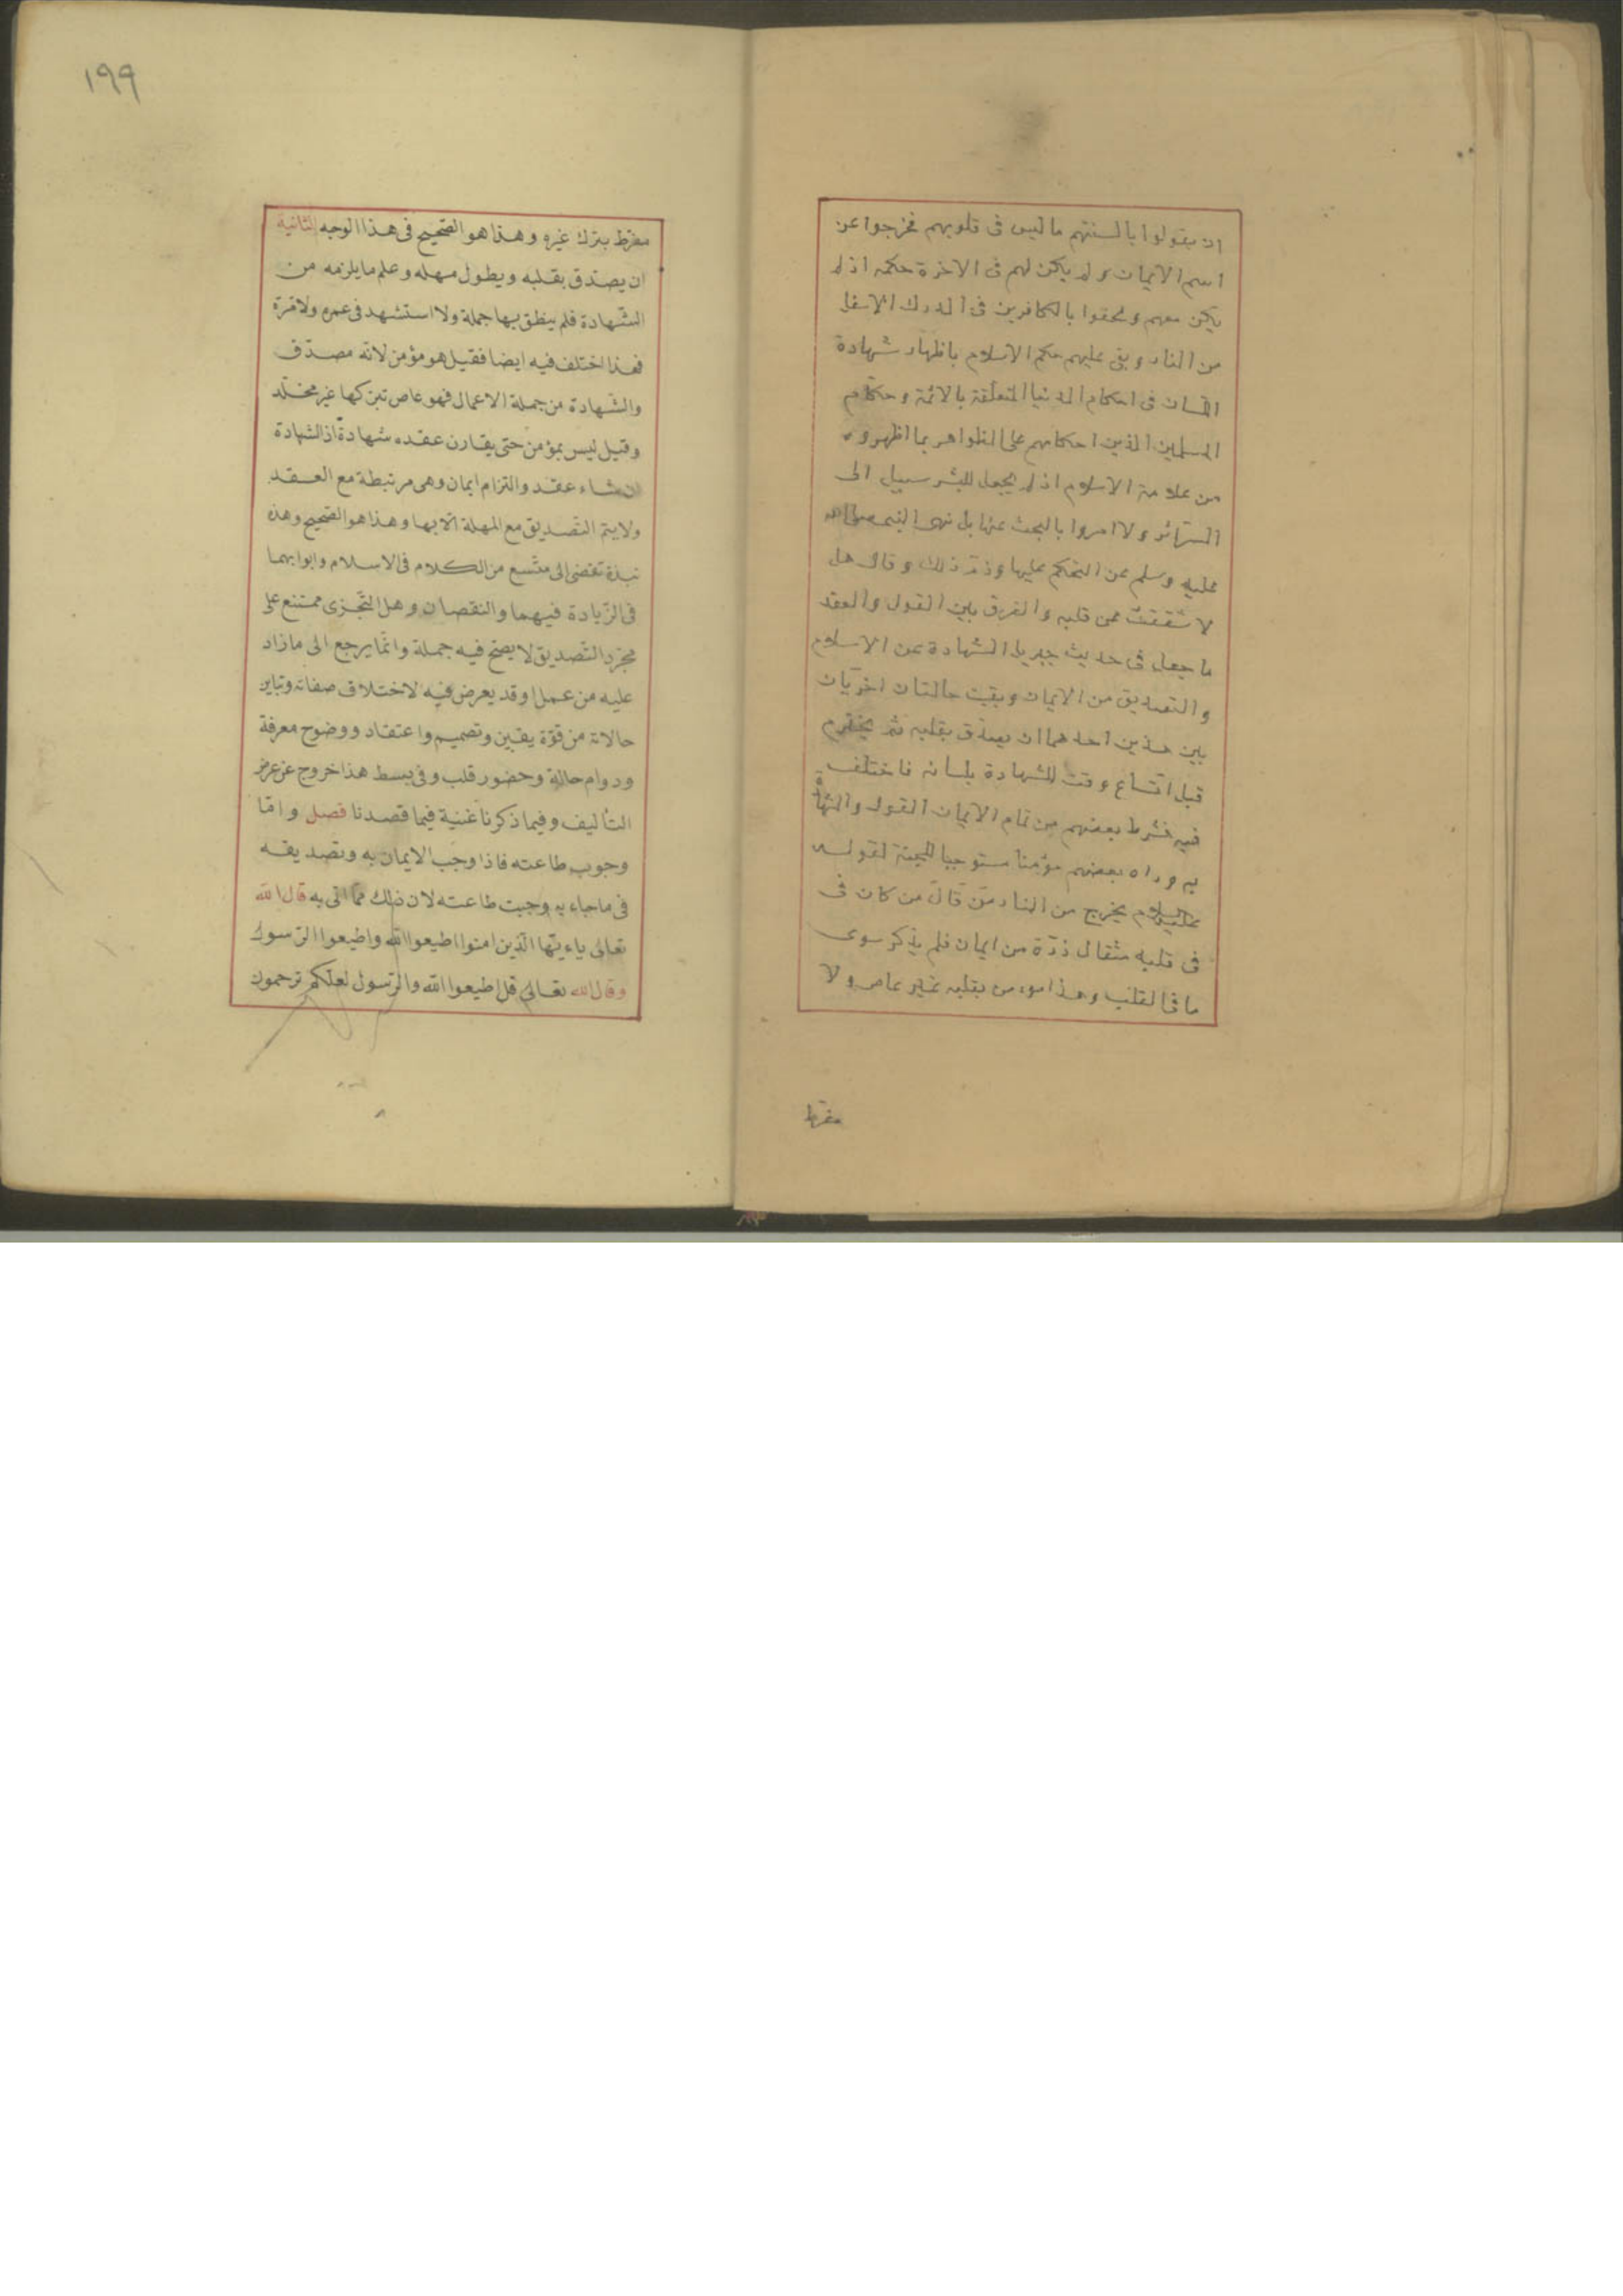 ان يقولوا بالسنتهم ما ليس فى قلوبهم فخرجوا عن
اسم الايمان ولم يكن لهم فى الاخرة حكمه اذ لم
يكن معهم ولحقوا بالكافرين فى الدرك الاسفل
من النار وبقى عليهم حكم الاسلام باظهار شهادة
اللسان فى احكام الدنيا المتعلقة بالائمة وحكام
المسلمين الذين احكامهم على الظواهر بما اظهروه
من علامة الاسلام اذ لم يجعل للبشر سبيل الى
السرائر ولا امروا بالبحث عنها بل نهى النبى صلى الله
عليه وسلم عن التحكم عليها وذم ذلك وقال هل
لا شققت عن قلبه والفرق بين القول والعقد
ما جعل فى حديث جبريل الشهادة من الاسلام
والتصديق من الايمان وبقيت حالتان اخريان
بين هذين احدهما ان يصدق بقلبه ثم يخترم
قبل اتساع وقت للشهادة بلسانه فاختلف
فيه فشرط بعضهم من تمام الايمان القول والشهادة
به وراه بعضهم مؤمنا مستوجبا للجنة لقوله
عليه السلام يخرج من النار من قال من كان فى
فى قلبه مثقال ذرّة من ايمان فلم يذكر سوى
ما فى القلب وهذا مومن بقلبه غير عاص ولا
مفرّط
١٩٩
مفرّط بترك غيره وهذا هو الصّحيح فى هذا الوجه الثانية
ان يصدّق بقلبه ويطول مهله وعلم ما يلزمه من
الشّهادة فلم ينطق بها جملة ولا استشهد فى عمره ولا مرّة
فهذا اختلف فيه ايضا فقيل هو مؤمن لانّه مصدّق
والشّهادة من جملة الاعمال فهو عاص بتركها غير مخلّد
وقيل ليس بمؤمن حتى يقارن عقده شهادة اذ الشهادة
انشاء عقد والتزام ايمان وهى مرتبطة مع العقد
ولا يتمّ التّصديق مع المهلة الّا بها وهذا هو الصّحيح وهذه
نبذة تفضى الى متّسع من الكلام فى الاسلام وابوابهما
فى الزّيادة فيهما والنقصان وهل التّجزى ممتنع على
مجرّد التّصديق لا يصحّ فيه جملة وانّما يرجع الى ما زاد
عليه من عمل او قد يعرض فيه لاختلاف صفاته وتباين
حالاته من قوّة يقين وتصميم واعتقاد ووضوح معرفة
ودوام حالة وحضور قلب وفى بسط هذا خروج عن غرض
التأليف وفيما ذكرنا غنية فيما قصدنا فصل وامّا
وجوب طاعته فاذا وجب الايمان به وتصديقه
فى ما جاء به وجبت طاعته لان ذلك ممّا اتى به قال الله
تعالى ياءيّها الّذين امنوا اطيعوا الله واطيعوا الرّسول
وقال الله تعالى قل اطيعوا الله والرّسول لعلّكم ترحمون